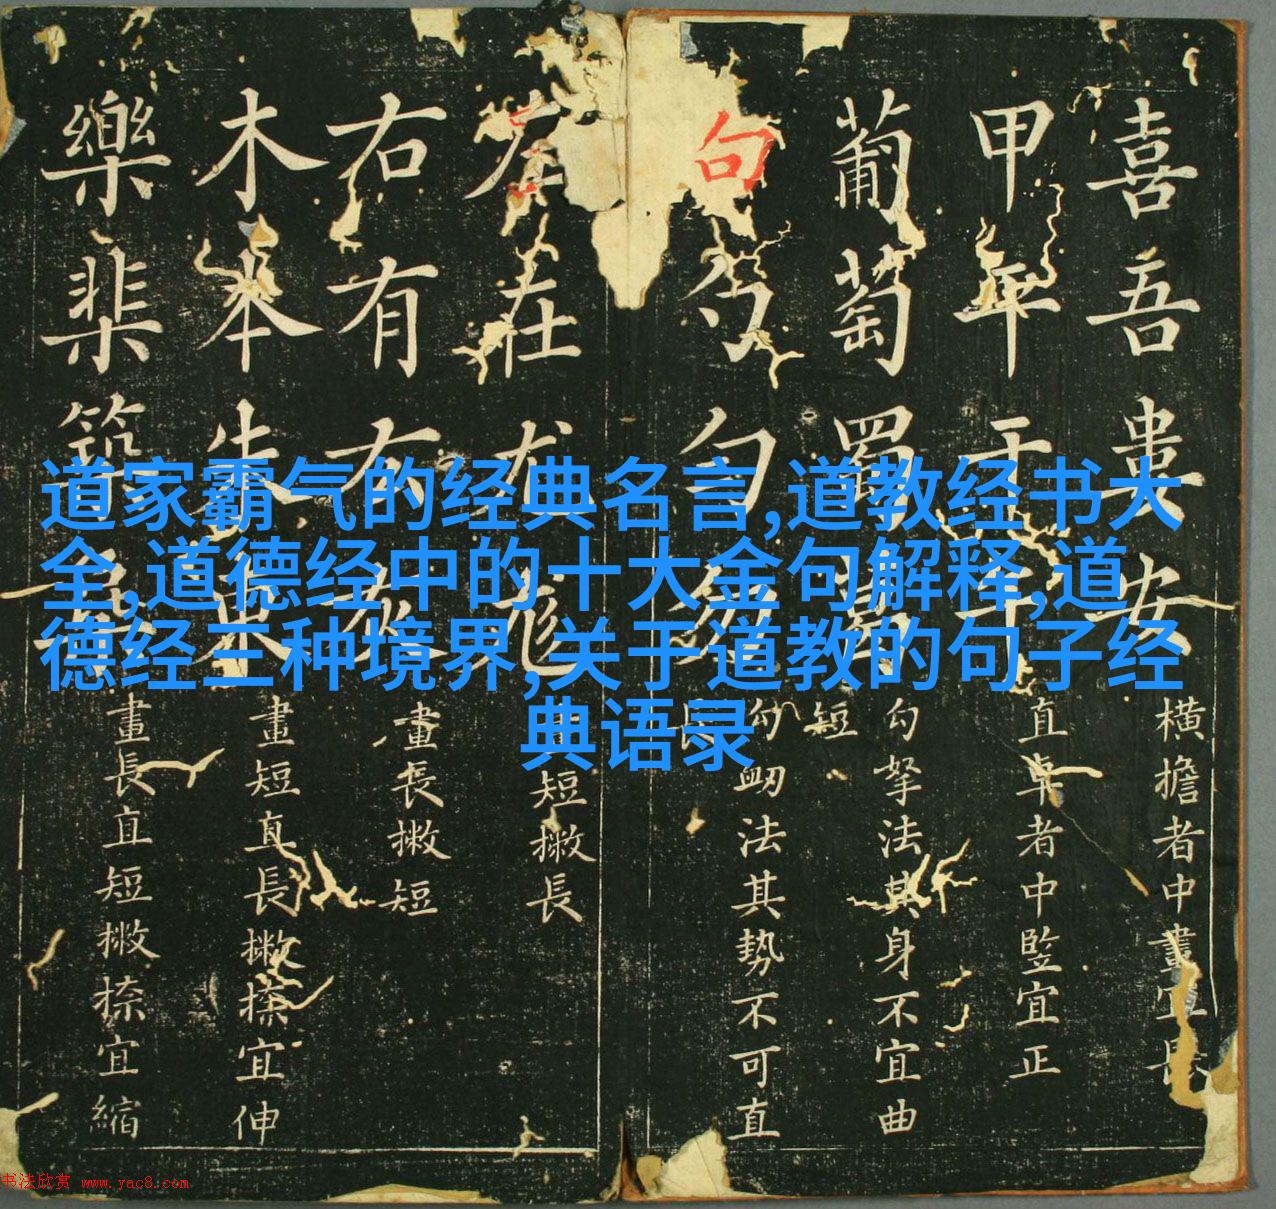 道家霸气的经典名言,道教经书大
全,道德经中的十大金句解释,道
德经三种境界,关于道教的句子经
典语录
喜吾婁安
橫擔者中畫宜
甲平干
直卓者中竪宜正
葡萄蜀
勾拏法其身不宜曲
短
句勺勿
勾衂法其勢不可直
左在尤尨
短撇長
右有灰
畫長撇短
木本朱
畫短直長撇捺宜伸
樂棐築
畫長直短撇捺宜縮
书法欣赏 www.yac8.com